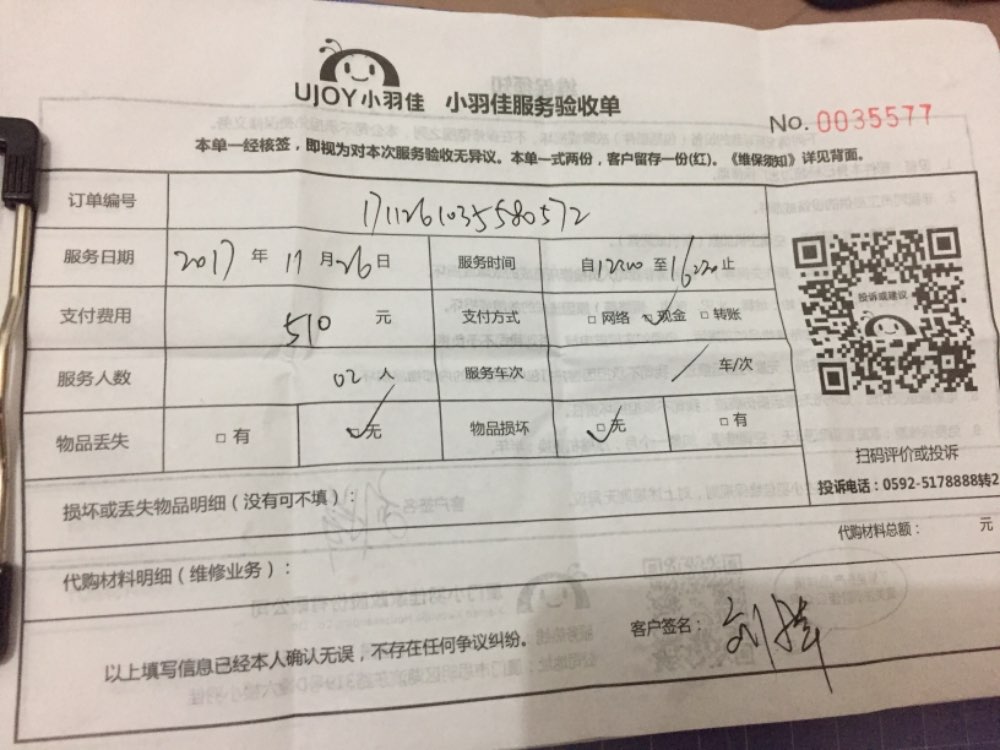 UJOY小羽佳 小羽佳服务验收单
No. 0035577
本单一经核签，即视为对本次服务验收无异议。本单一式两份，客户留存一份(红)。《维保须知》详见背面。
订单编号 171126103558 0572
服务日期 2017 年 11 月 26 日 服务时间 自 12:00 至 16:20 止
支付费用 510 元 支付方式 □ 网络 □ 现金 □ 转账
服务人数 02 人 服务车次 / 车/次
物品丢失 □ 有 □ 无 物品损坏 □ 无 □ 有
投诉或建议
扫码评价或投诉
投诉电话：0592-5178888转2
损坏或丢失物品明细（没有可不填）：
代购材料总额： 元
代购材料明细（维修业务）：
以上填写信息已经本人确认无误，不存在任何争议纠纷。
客户签名：